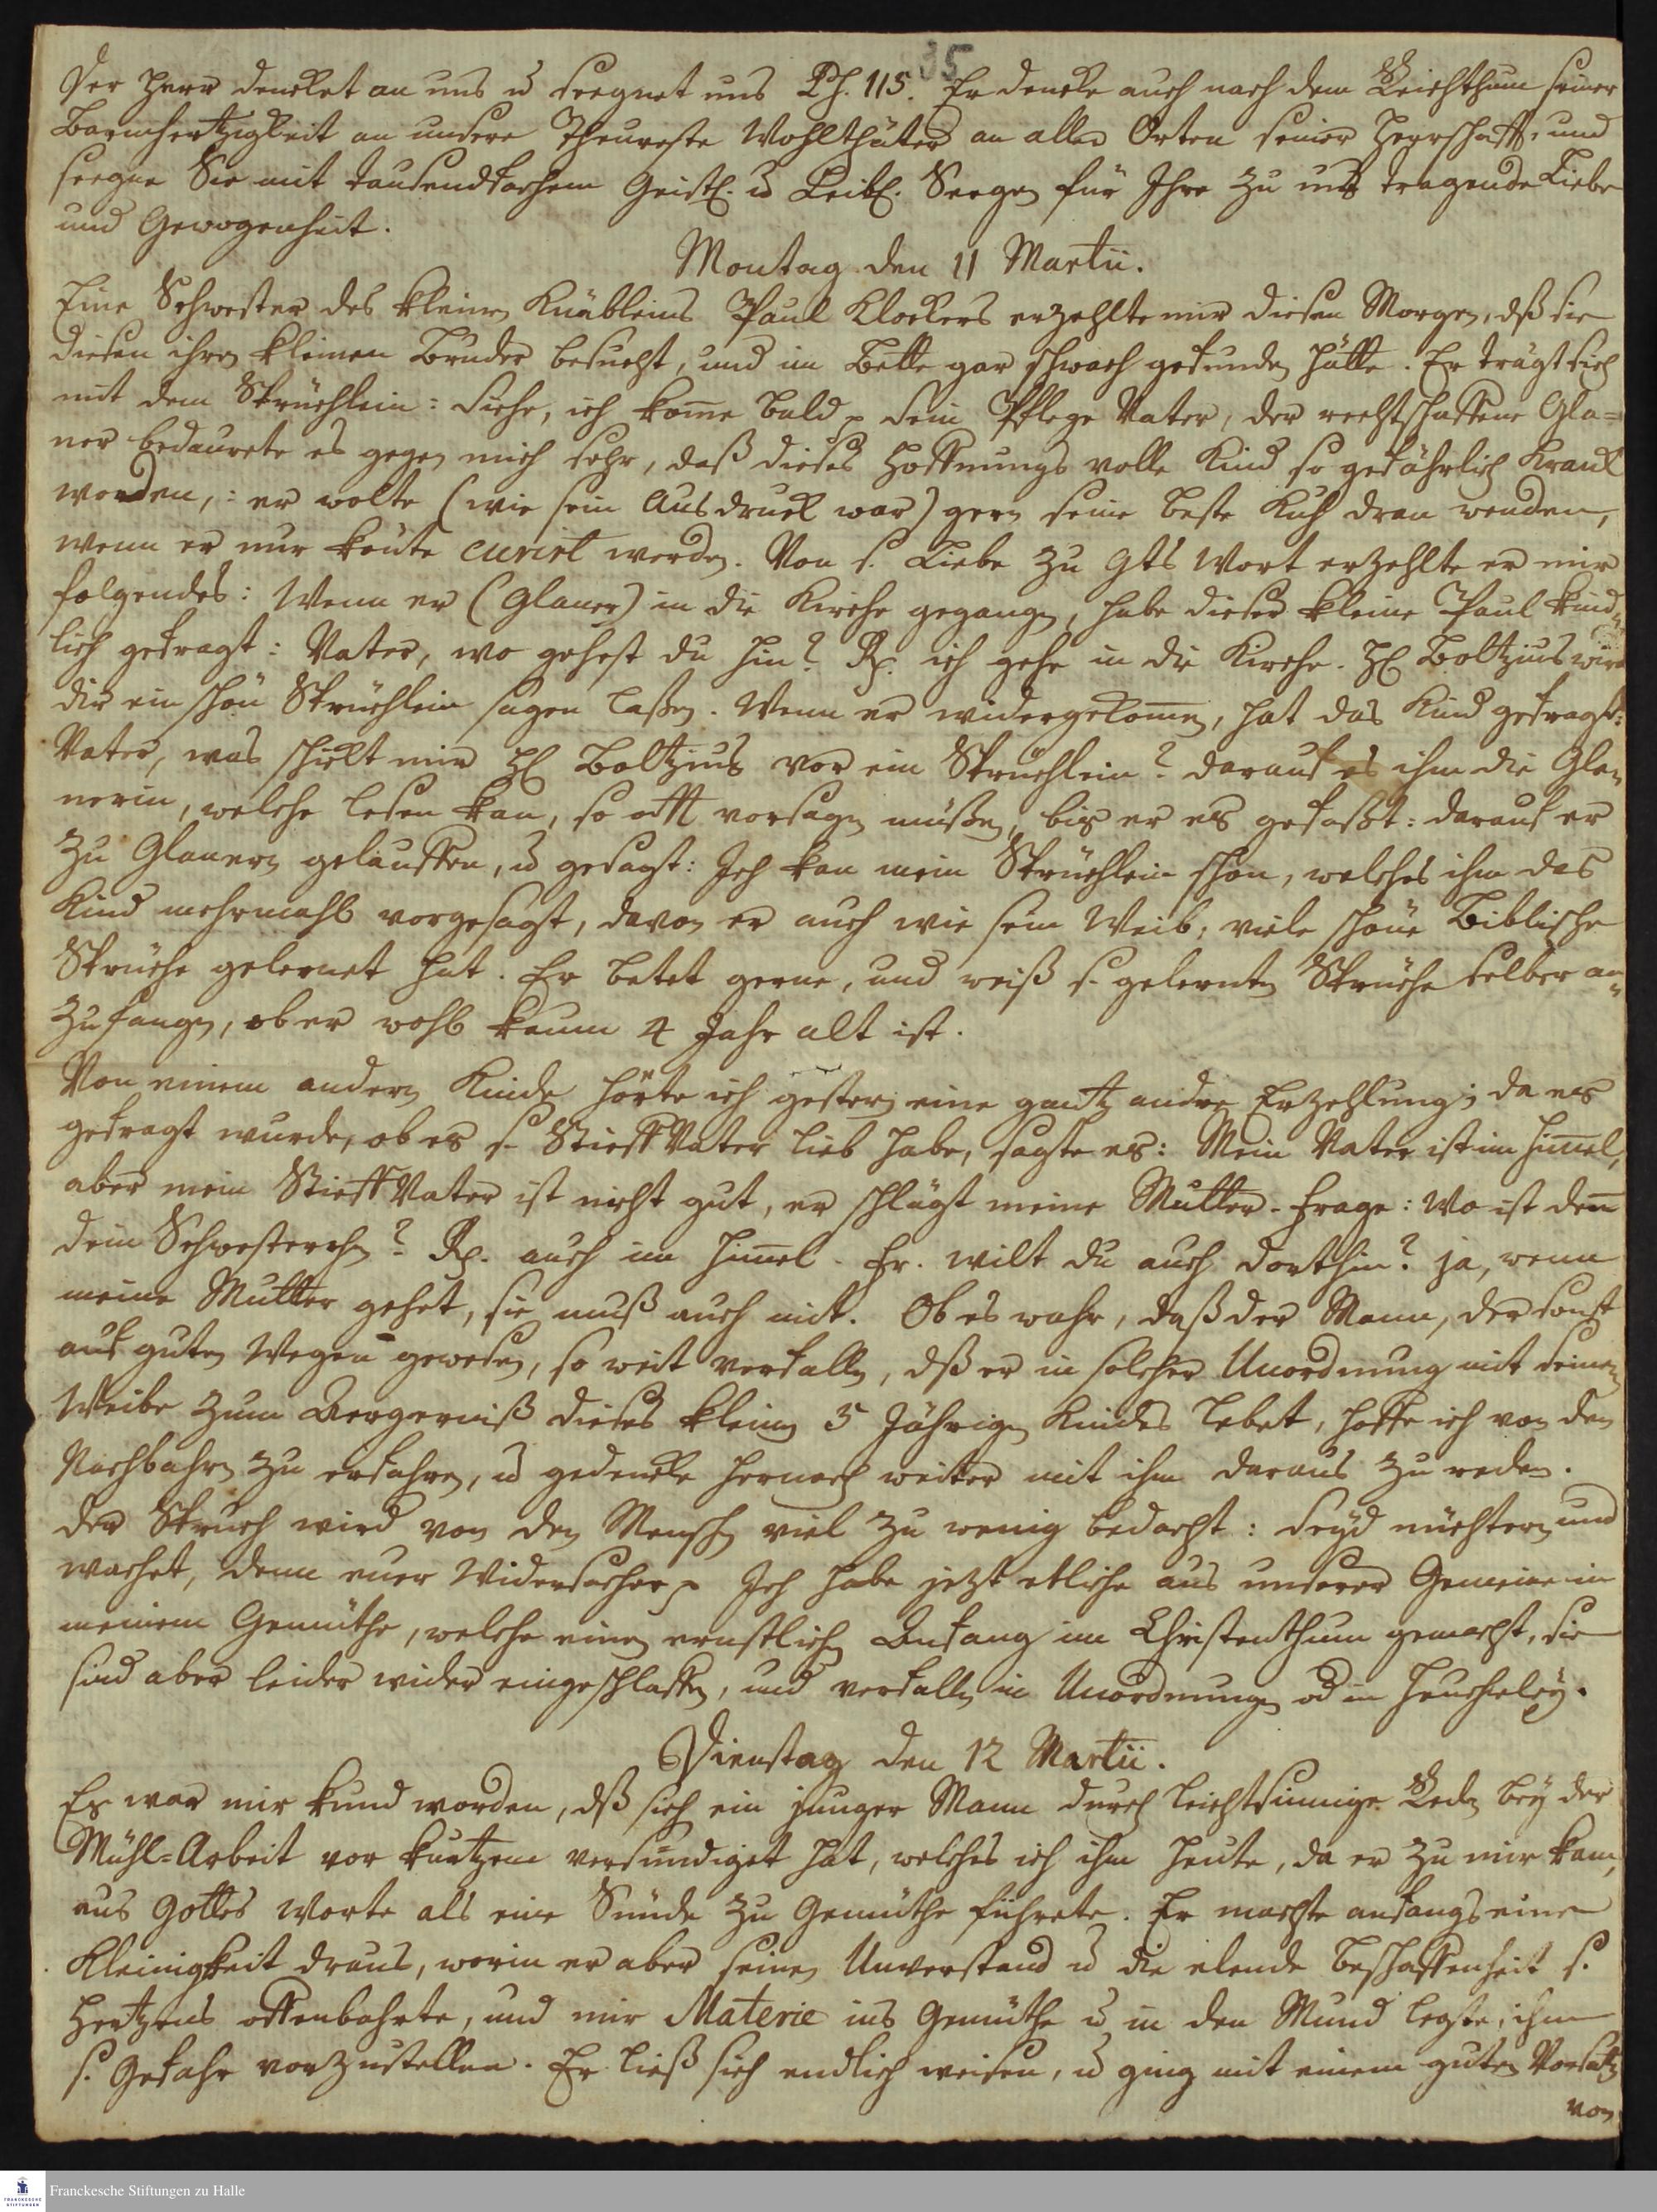 35
Der Herr dencket an uns u. seegnet uns Ps. 115. Er dencke auch nach dem Reichthum seiner
Barmhertzigkeit an unsere Theureste Wohlthäter an allen Orten seiner Herrschafft, und
seegne Sie mit tausendfachem Geistl. u. Leibl. Seegen für Ihre zu uns tragende Liebe
und Gewogenheit.
Montag den 11 Martii.
Eine Schwester des kleinen Knäbleins Paul Klockers erzehlte mir diesen Morgen, dß sie
diesen ihren kleinen Bruder besucht, und im Bette gar schwach gefunden hätte. Er trägt sich
mit dem Sprüchlein: Siehe, ich kom̄e bald p Sein Pflege Vater, der rechtschaffene Gla=
ner bedaurete es gegen mich sehr, daß dieses Hoffnungs volle Kind so gefährlich kranck
worden,: er wolte (wie sein Ausdruck war) gern seine beste Kuh dran wenden,
wenn er nur könte curirt werden. Von s. Liebe zu Gts Wort erzehlte er mir
folgendes: Wenn er (Glaner) in die Kirche gegangen, habe dieser kleine Paul kind=
lich gefragt: Vater, wo gehest du hin? Rp. ich gehe in die Kirche. HE Boltzius wird
dir ein schön Sprüchlein sagen laßen. Wenn er widergekom̄en, hat das Kind gefragt:
Vater, was schickt mir HE Boltzius vor ein Sprüchlein? darauf es ihm die Gla=
nerin, welche lesen kan, so offt vorsagen müßen, bis er es gefaßt: darauf er
zu Glanern gelauffen, u. gesagt: Ich kan mein Sprüchlein schon, welches ihm das
Kind mehrmahls vorgesagt, davon er auch wie sein Weib, viele schöne Biblische
Sprüche gelernet hat. Er betet gerne, und weiß s. gelernten Sprüche selber an=
zufangen, ob er wohl kaum 4 Jahr alt ist.
Von einem andern Kinde hörte ich gestern eine gantz andre Erzehlung; da es
gefragt wurde, ob es s. Stieff Vater lieb habe, sagte es: Mein Vater ist im Him̄el,
aber mein Stieff Vater ist nicht gut, er schlägt meine Mutter. Frage: Wo ist den̄
dein Schwesterchen? Rp. auch im Him̄el. Fr. wilt du auch dorthin? ja, wenn
meine Mutter gehet, sie muß auch mit. Ob es wahr, daß der Mann, der sonst
auf guten Wegen gewesen, so weit verfallen, dß er in solcher Unordnung mit seinem
Weibe zum Aergerniß dieses kleinen 5 Jährigen Kindes lebet, hoffe ich von den
Nachbahrn zu erfahren, u. gedencke hernach weiter mit ihm daraus zu reden.
Der Spruch wird von den Menschen viel zu wenig bedacht: Seyd nüchtern und
wachet, denn euer Widersacher p Ich habe jezt etliche aus unserer Gemeine in
meinem Gemüthe, welche einen ernstlichen Anfang im Christenthum gemacht, sie
sind aber leider wider eingeschlaffen, und verfallen in Unordnungen od in Heucheley.
Dienstag den 12 Martii.
Es war mir kund worden, dß sich ein junger Mann durch leichtsinnige Reden bey der
Mühl=Arbeit vor kurtzem versündiget hat, welches ich ihm heute, da er zu mir kam,
aus Gottes Worte als eine Sünde zu Gemüthe führete. Er machte anfangs eine
Kleinigkeit draus, worin er aber seinen Unverstand u. die elende Beschaffenheit s.
Hertzens offenbahrte, und mir Materie ins Gemüthe u. in den Mund legte, ihm
s. Gefahr vorzustellen. Er ließ sich endlich weisen, u. ging mit einem guten Vorsatz
von
Franckesche Stiftungen zu Halle